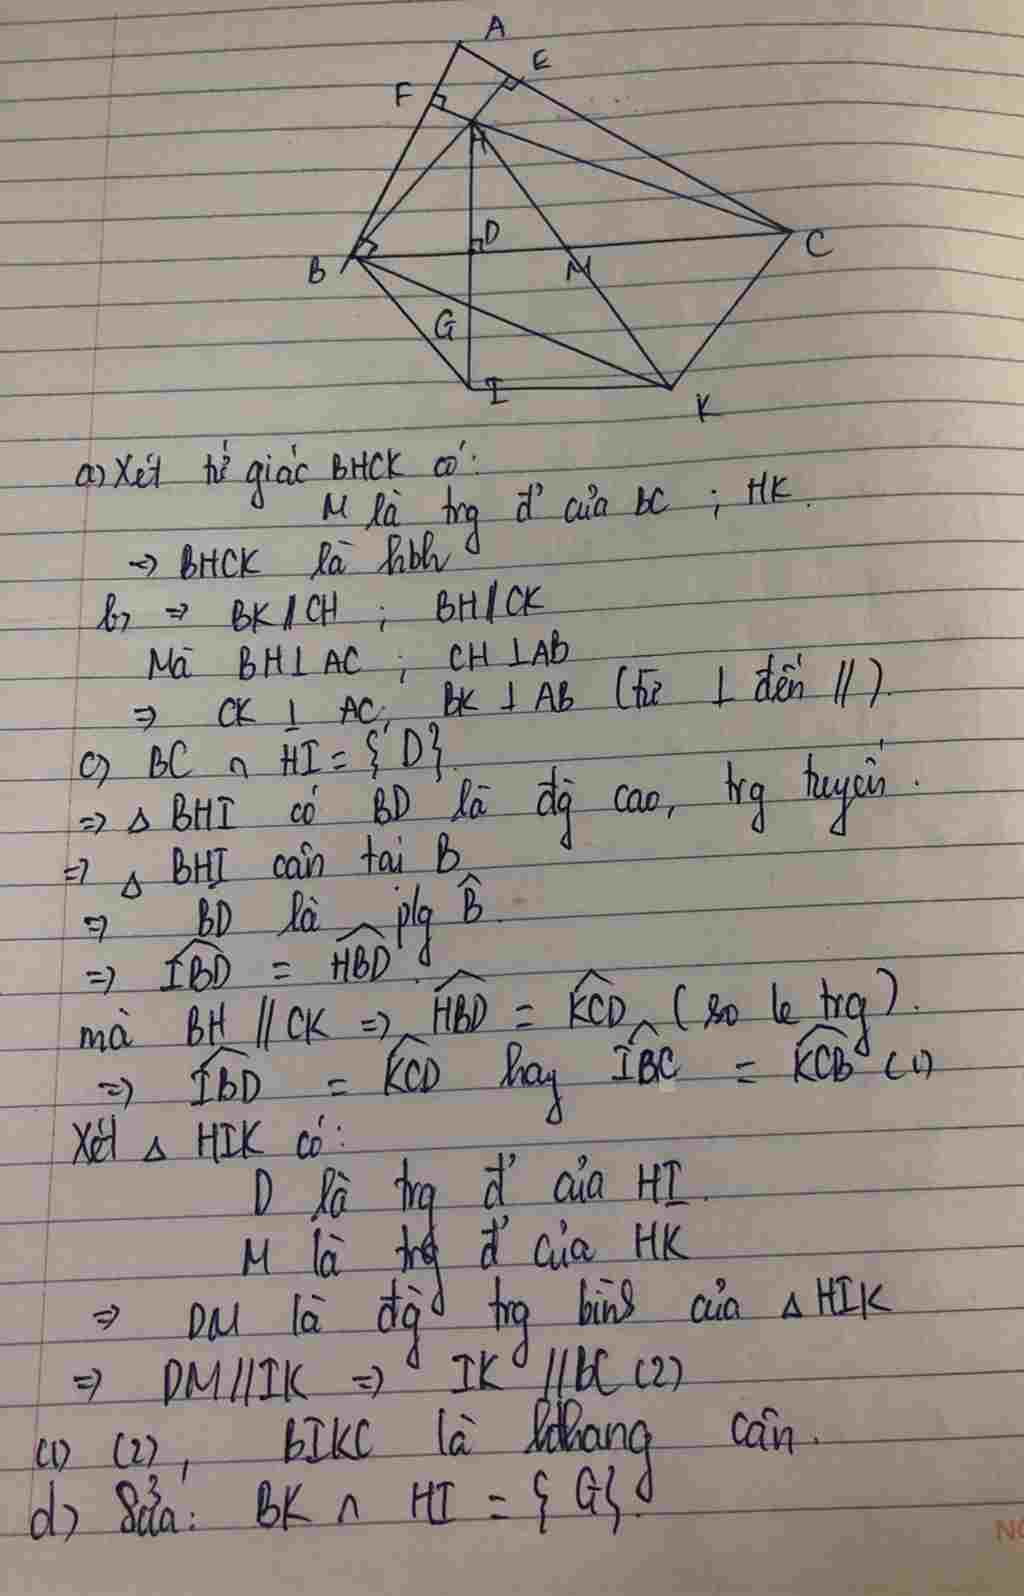 A
E
F
H
B
D
C
M
G
I
K
a) Xét tứ giác BHCK có:
M là trg đ' của BC ; HK.
=> BHCK là hbh
b) => BK // CH ; BH // CK
Mà BH ⊥ AC ; CH ⊥ AB
=> CK ⊥ AC, BK ⊥ AB (từ ⊥ đến //).
c) BC ∩ HI = {D}.
=> Δ BHI có BD là đg cao, trg tuyến.
=> Δ BHI cân tại B
=> BD là plg B̂.
=> \widehat{IBD} = \widehat{HBD}.
mà BH // CK => \widehat{HBD} = \widehat{KCD} (so le trg).
=> \widehat{IBD} = \widehat{KCD} hay \widehat{IBC} = \widehat{KCB} (1)
Xét Δ HIK có:
D là trg đ' của HI.
M là trg đ' của HK
=> DM là đg trg bìn của Δ HIK
=> DM // IK => IK // BC (2)
(1) (2), BIKC là hthang cân.
d) Sửa: BK ∩ HI = {G}.